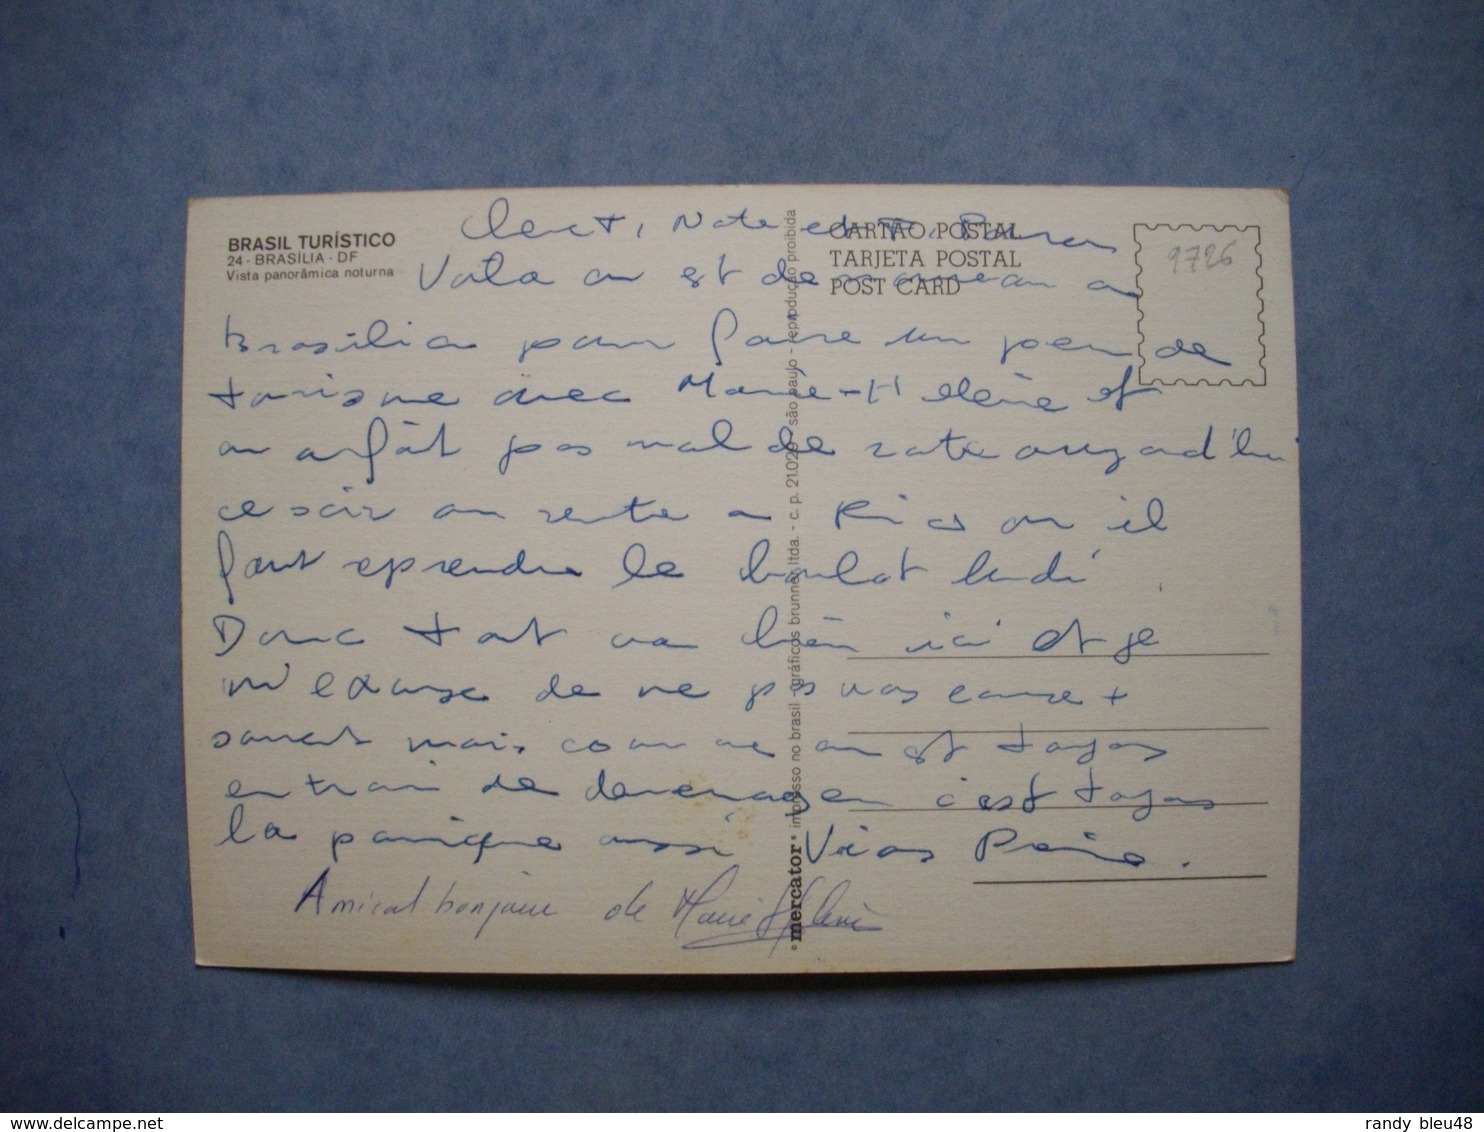 BRASIL TURÍSTICO
24 - BRASÍLIA - DF
Vista panorâmica noturna
CARTÃO POSTAL
TARJETA POSTAL
POST CARD
9726
on est de
Brasilia pour faire un peu de
tourisme avec Marie-Hélène et
on a fait pas mal de route aujourd'hui
ce soir on rentre a Rio car il
faut reprendre le boulot lundi
Donc tout va bien ici et je
m'excuse de ne pas vous ecrire +
souvent mais comme on est toujours
en train de demenager c'est toujours
la panique aussi
Amical bonjour de Marie Hélène
mercator impresso no brasil - gráficos brunner ltda. - c. p. 21.029 - são paulo - reprodução proibida
delcampe.net
randy_bleu48